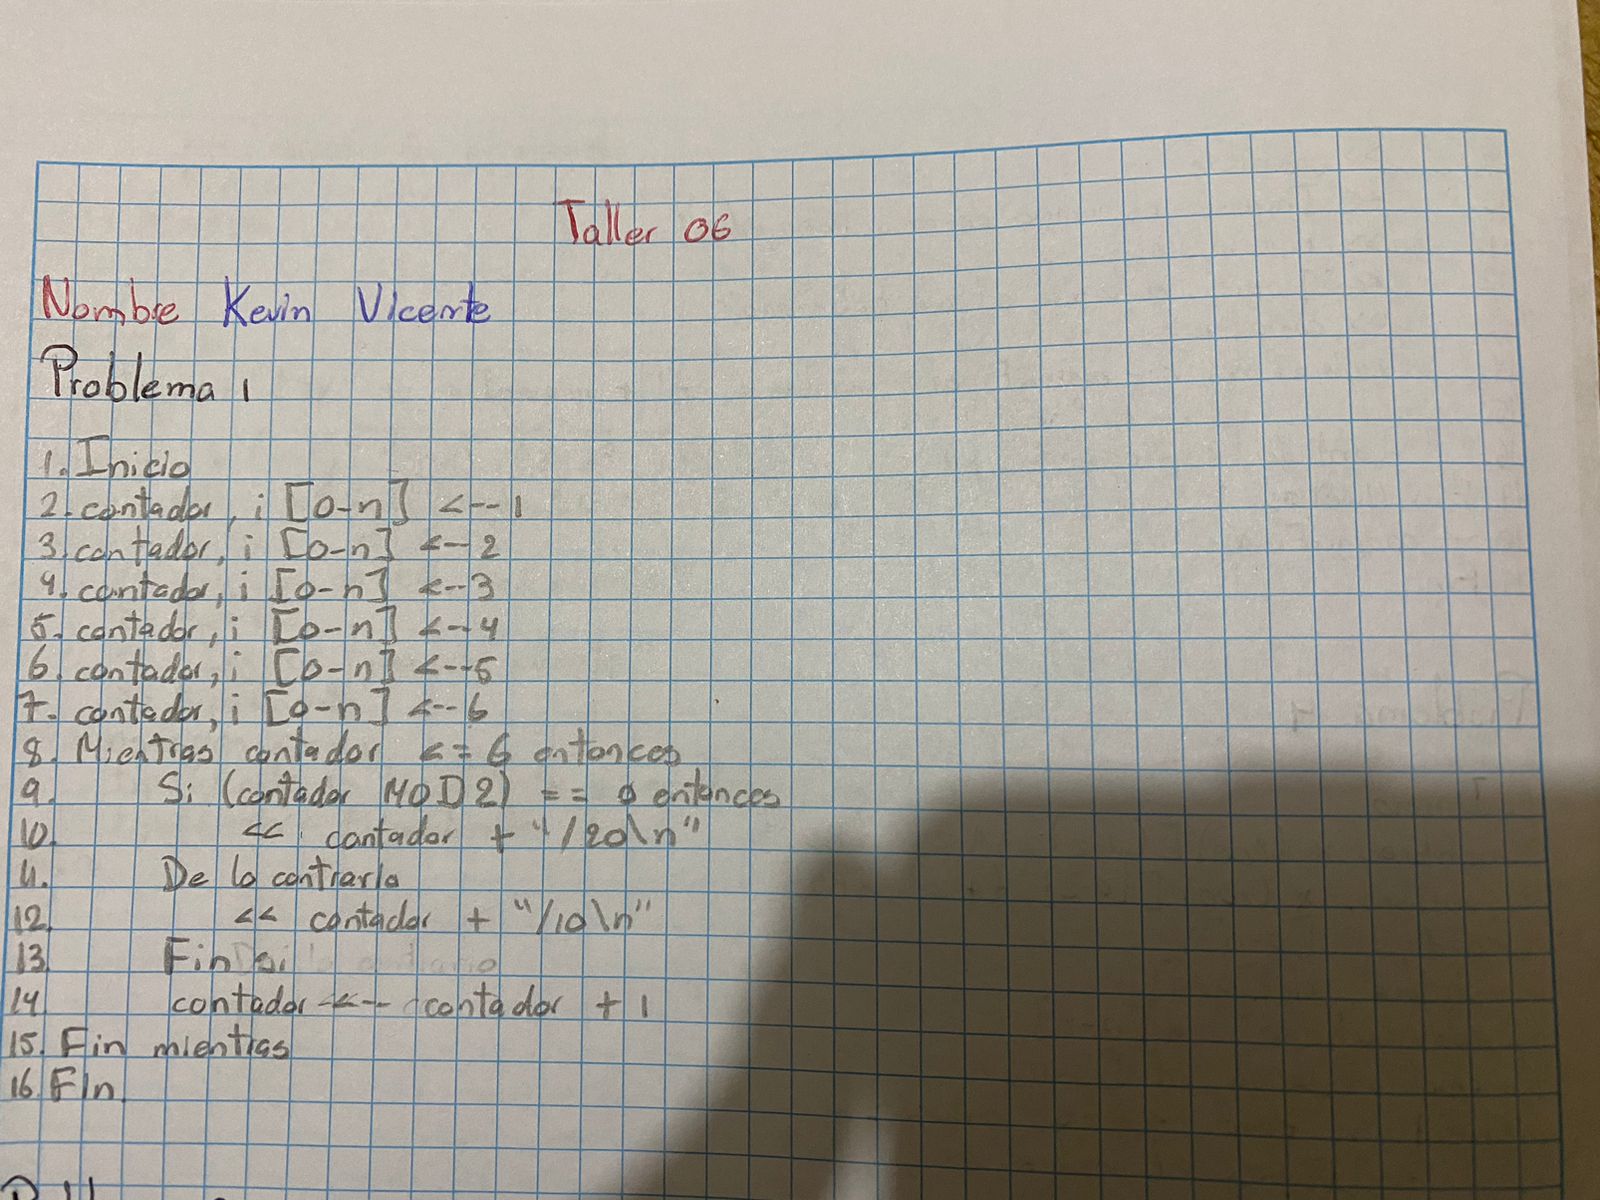 Taller 06
Nombre Kevin Vicente
Problema 1
1. Inicio
2. contador, i [0-n] <-- 1
3. contador, i [0-n] <-- 2
4. contador, i [0-n] <-- 3
5. contador, i [0-n] <-- 4
6. contador, i [0-n] <-- 5
7. contador, i [0-n] <-- 6
8. Mientras contador <= 6 entonces
9. Si (contador MOD 2) == 0 entonces
10. << contador + "/20\n"
11. De lo contrario
12. << contador + "/10\n"
13. Fin si
14. contador <-- contador + 1
15. Fin mientras
16. Fin